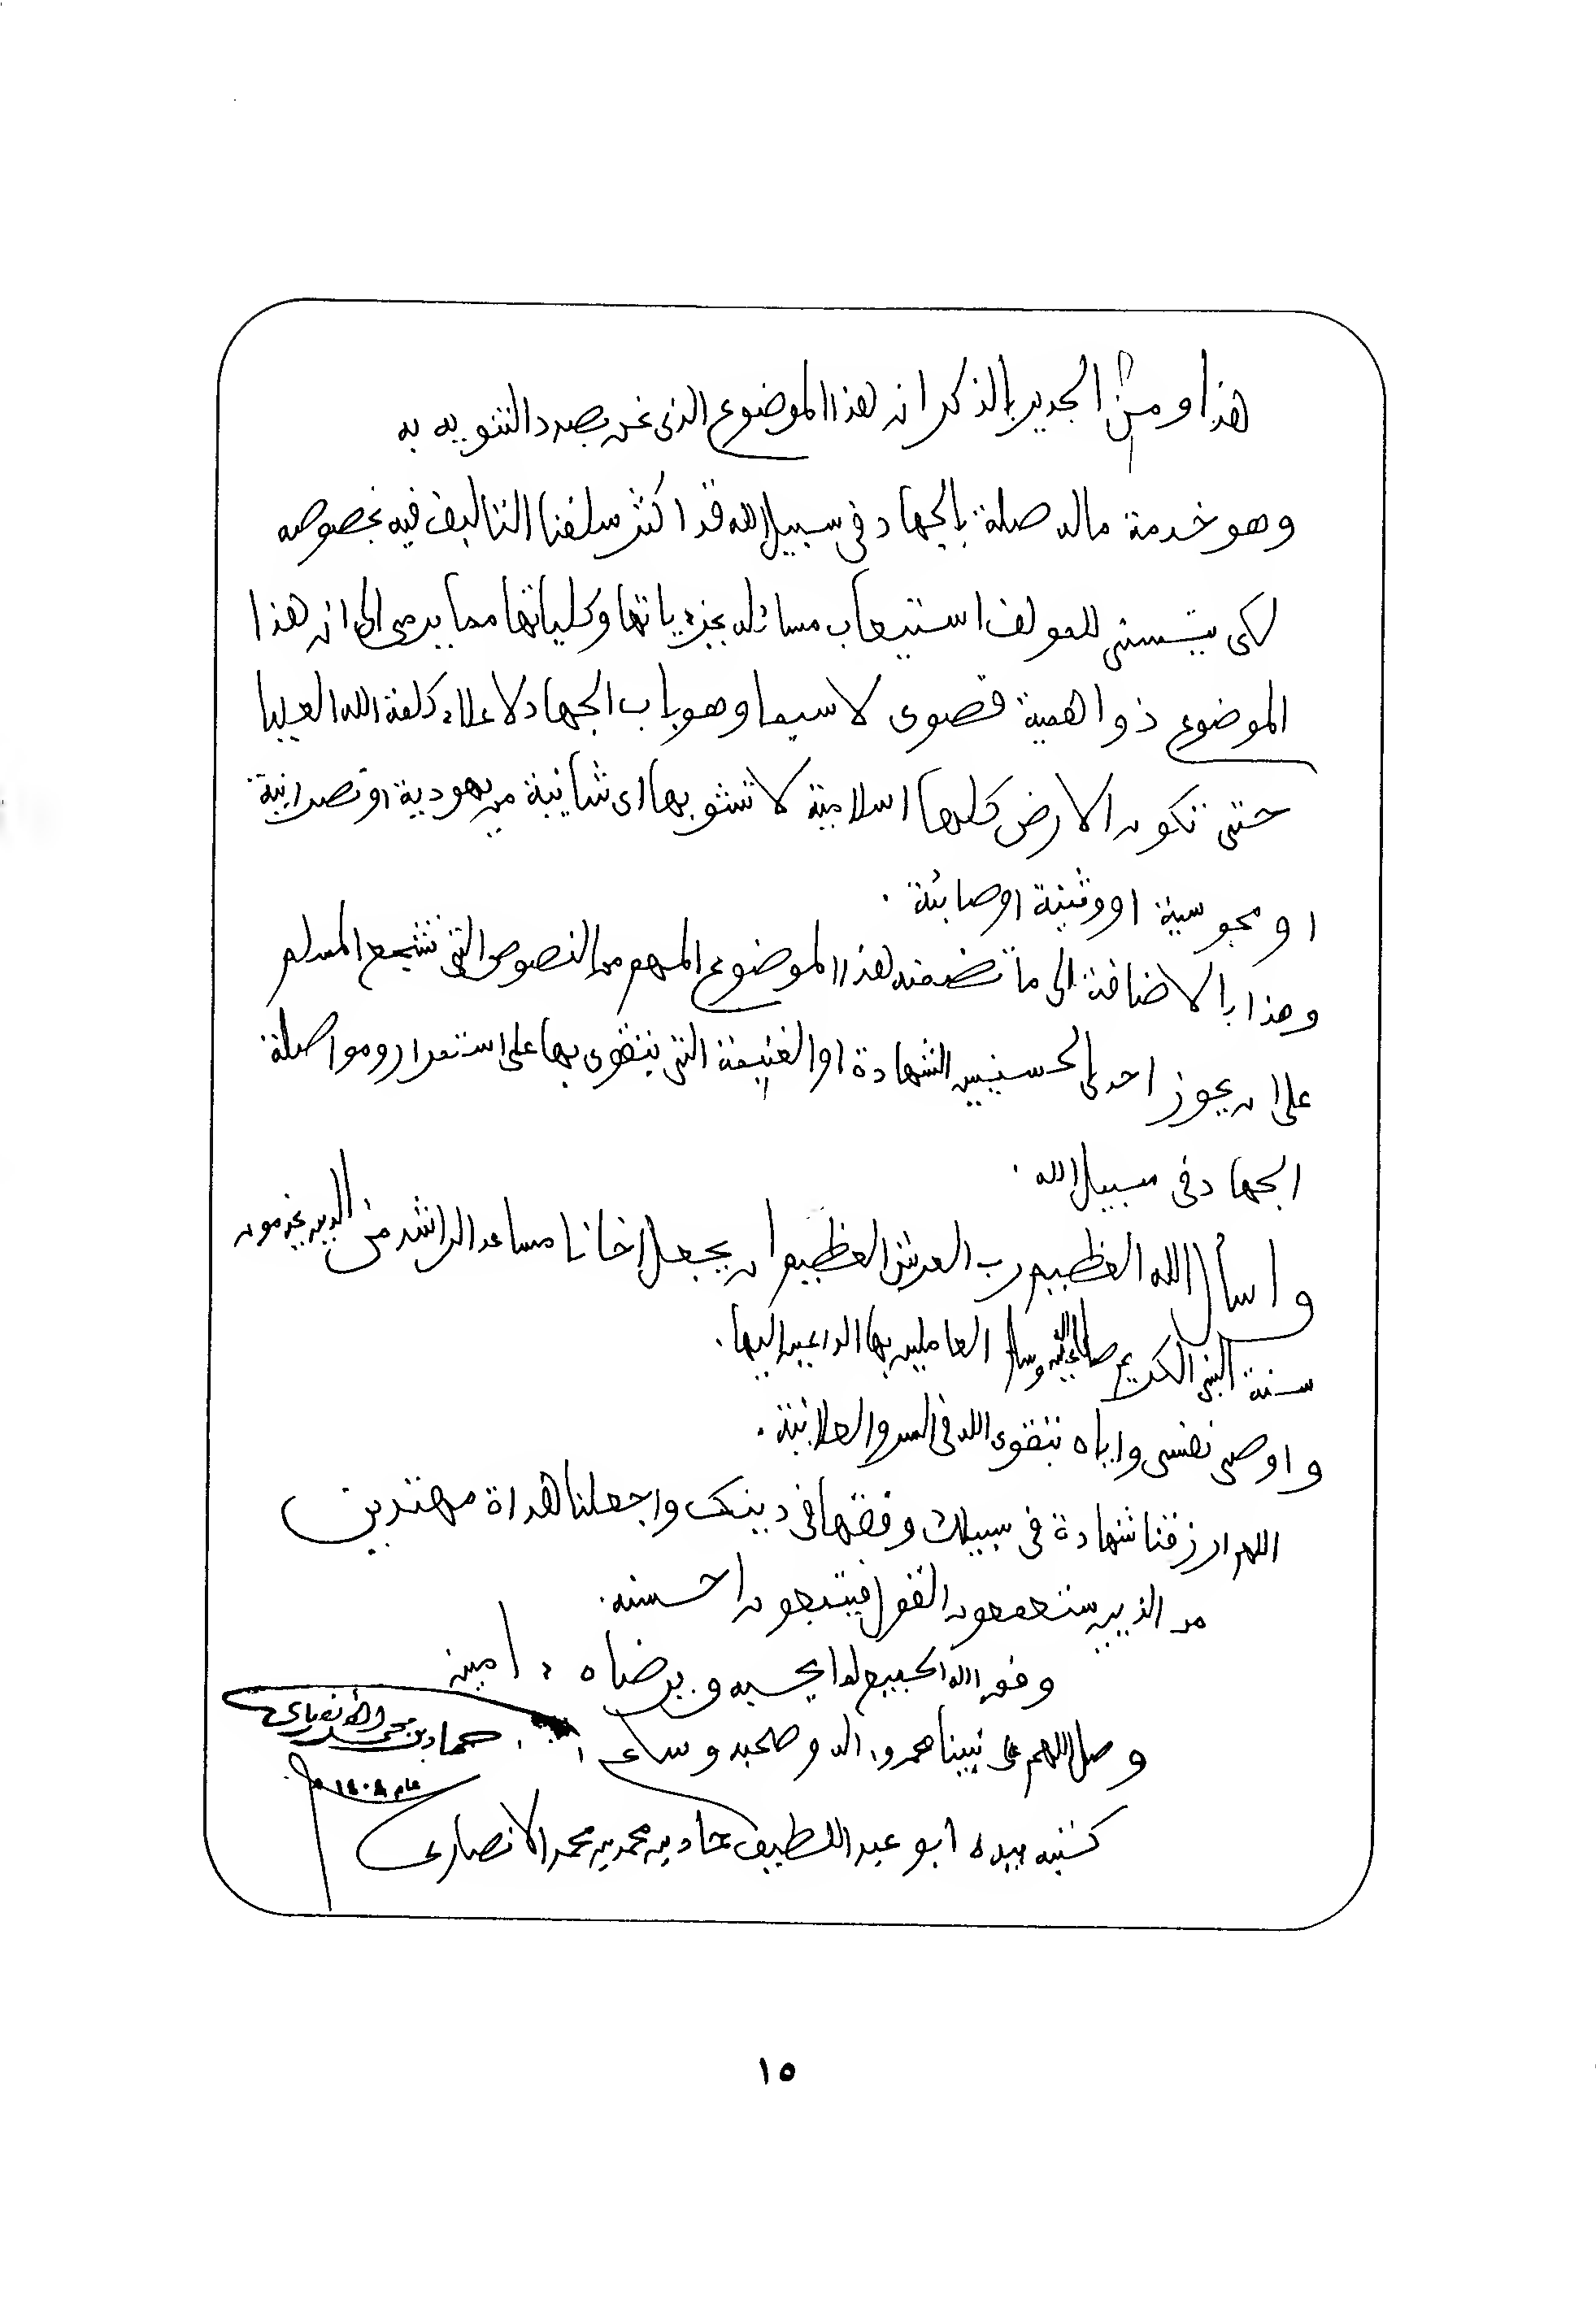 هذا ومن الجدير بالذكر ان هذا الموضوع الذى نحن بصدد التنويه به
وهو خدمة ماله صلة بالجهاد فى سبيل الله قد اكثر سلفنا التاليف فيه بخصوصه
لكى يتسنى للمولف استيعاب مسائله بجزءياتها وكلياتها مما يرمى الى ان هذا
الموضوع ذو اهمية قصوى لاسيما وهو باب الجهاد لاعلاء كلمة الله العليا
حتى تكون الارض كلها اسلامية لا تشوبها اى شانيبة من يهودية او نصرانية
او مجوسية او وثنية او صابئة .
وهذا بالاضافة الى ما تضمنه هذا الموضوع المهم من النصوص التى تشجع المسلم
على ان يحوز احدى الحسنيين الشهادة او الغنيمة التى يتقوى بها على استمرار ومواصلة
الجهاد فى سبيل الله .
واسأل الله العظيم رب العرش العظيم ان يجعل اخانا مساعد الراشد من الذين يخدمون
سنة النبى الكريم صلى الله عليه وسلم العاملين بها الداعين اليها .
واوصى نفسى واياه بتقوى الله فى السر والعلانية .
اللهم ارزقنا شهادة فى سبيلك وفقها فى دينك واجعلنا هداة مهتدين
من الذين يستمعون القول فيتبعون احسنه .
وفق الله الجميع لما يحبه ويرضاه ، امين
وصل اللهم على نبينا محمد واله وصحبه وسلم
حماد بن محمد الأنصاري
عام ١٤٠٨ هـ
كتبه بيده ابو عبد اللطيف حماد بن محمد بن محمد الانصارى
١٥